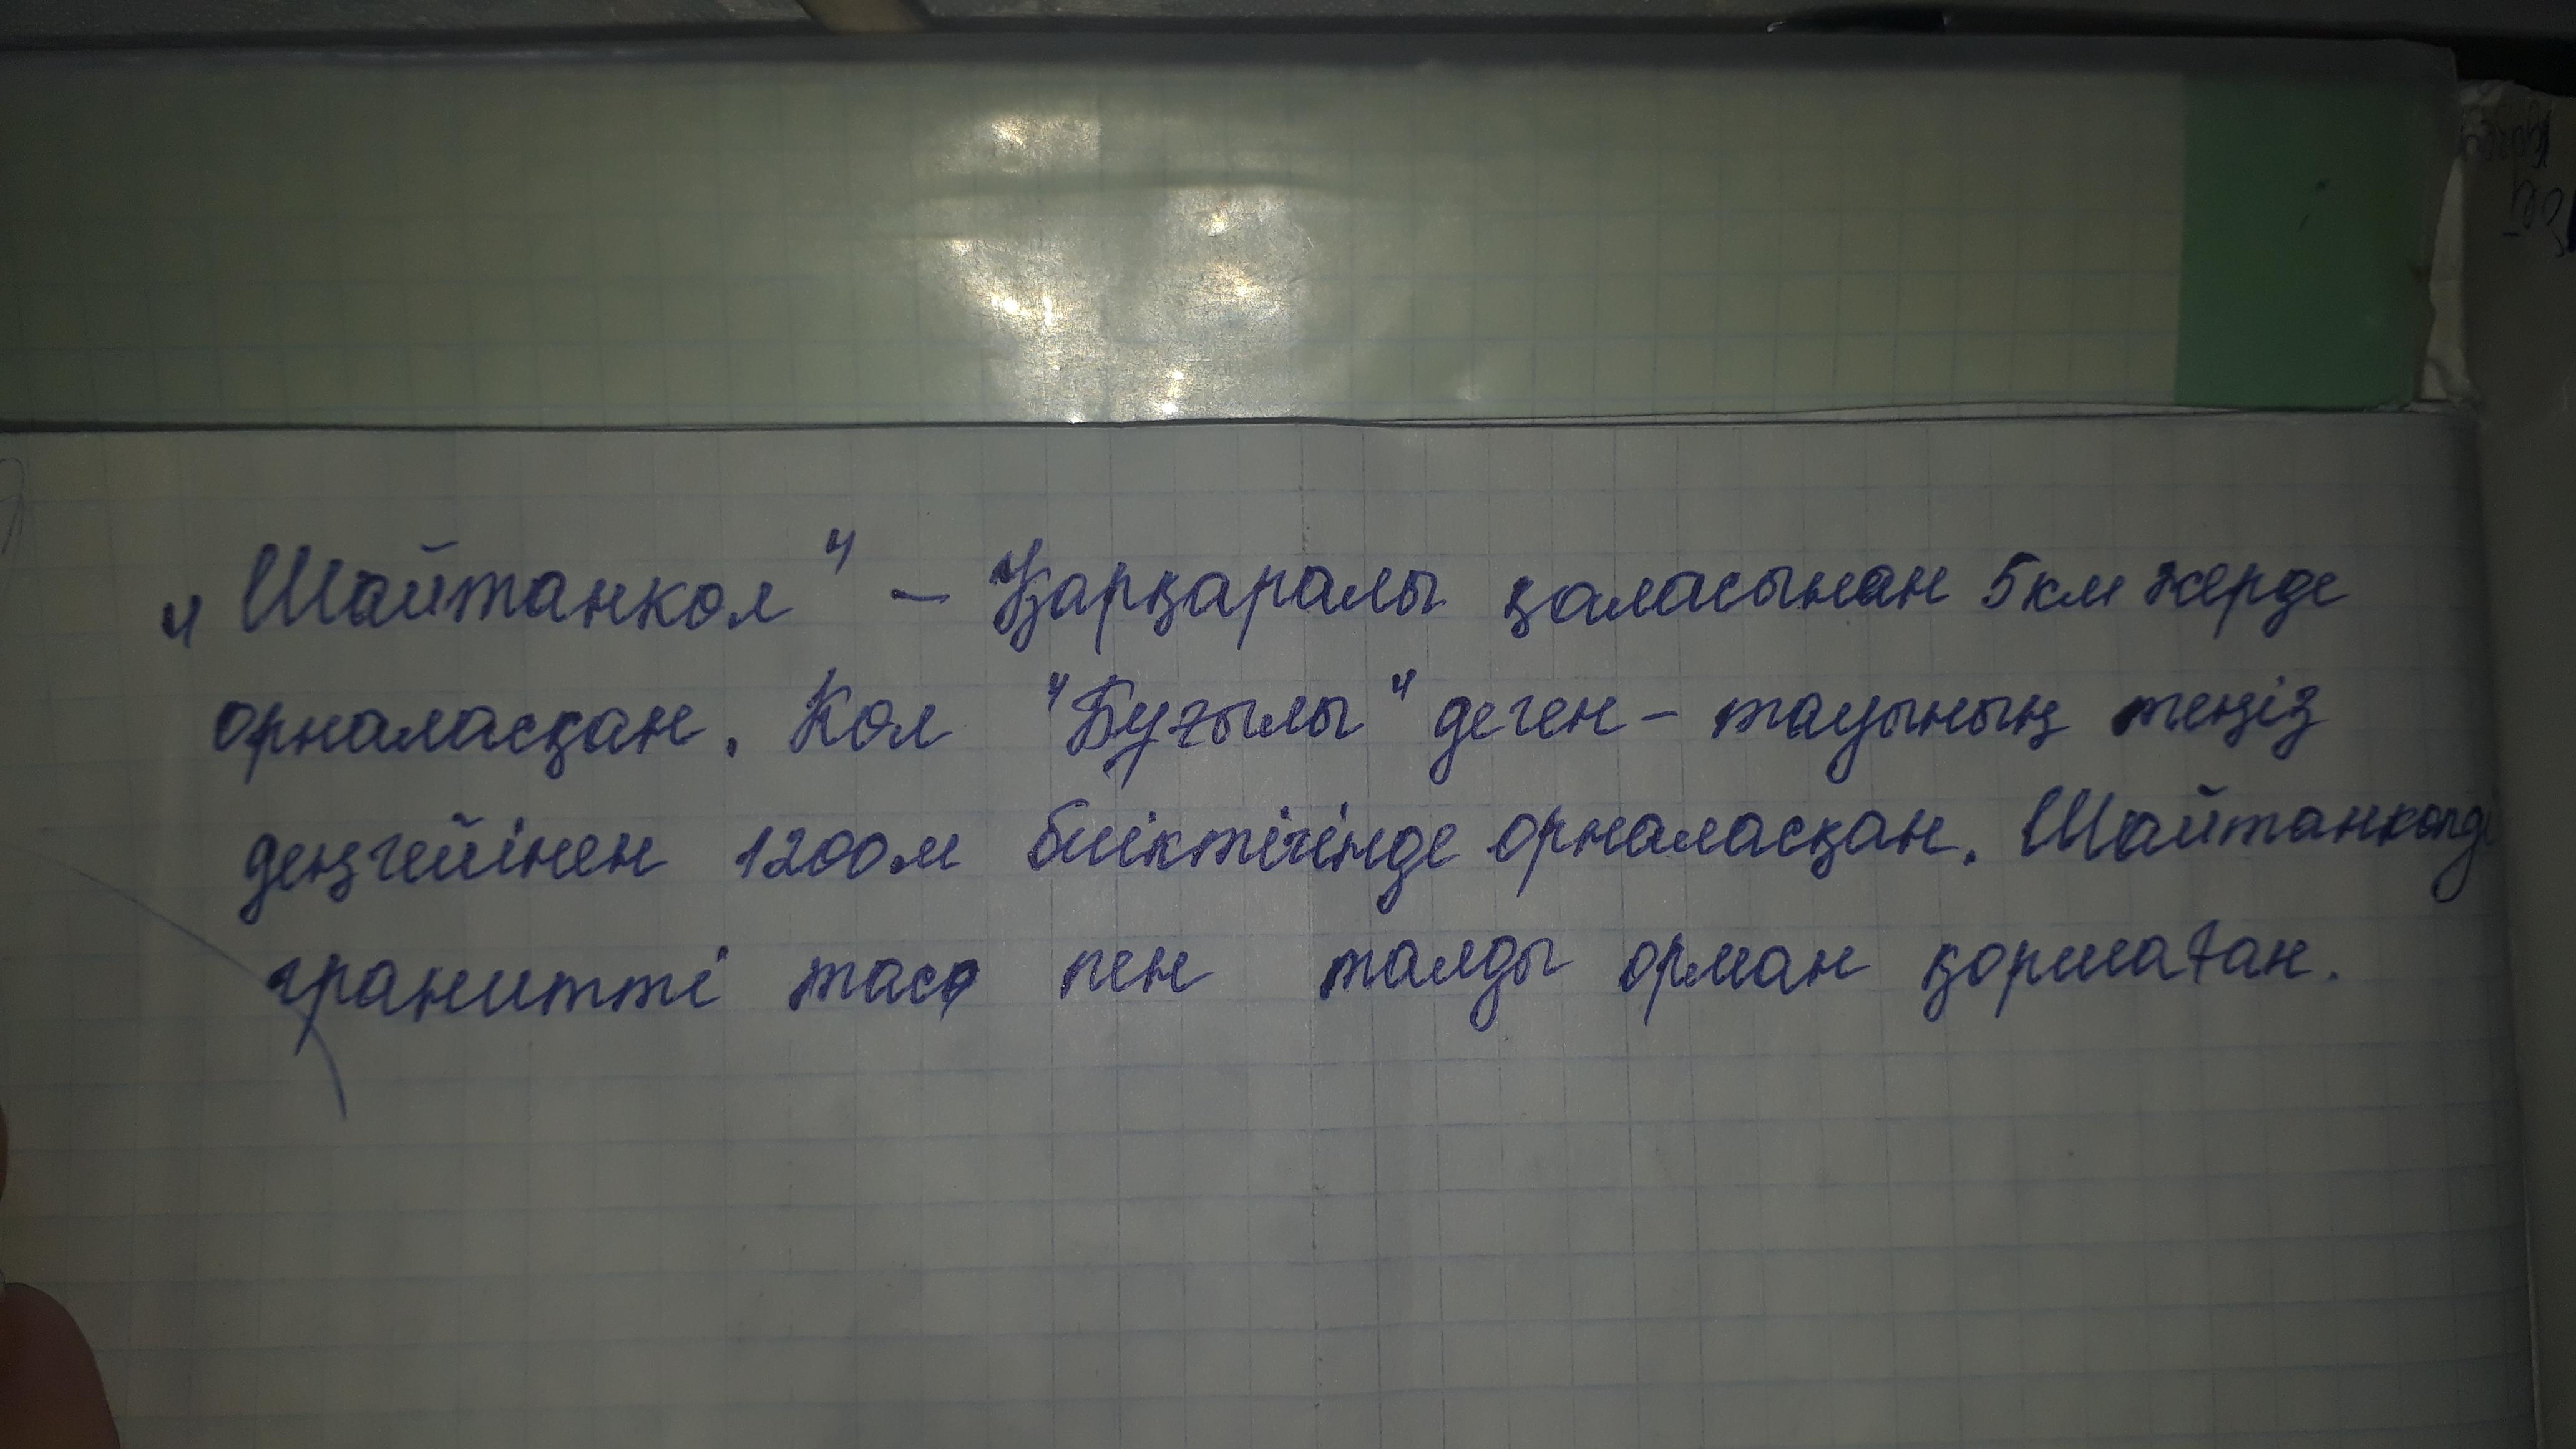 "Шайтанкол" – Қарқаралы қаласынан 5км жерде
орналасқан. Кол "Бұғылы" деген – тауының теңіз
деңгейінен 1200м биіктігінде орналасқан. Шайтанколді
гранитті тас пен талды орман қоршаған.